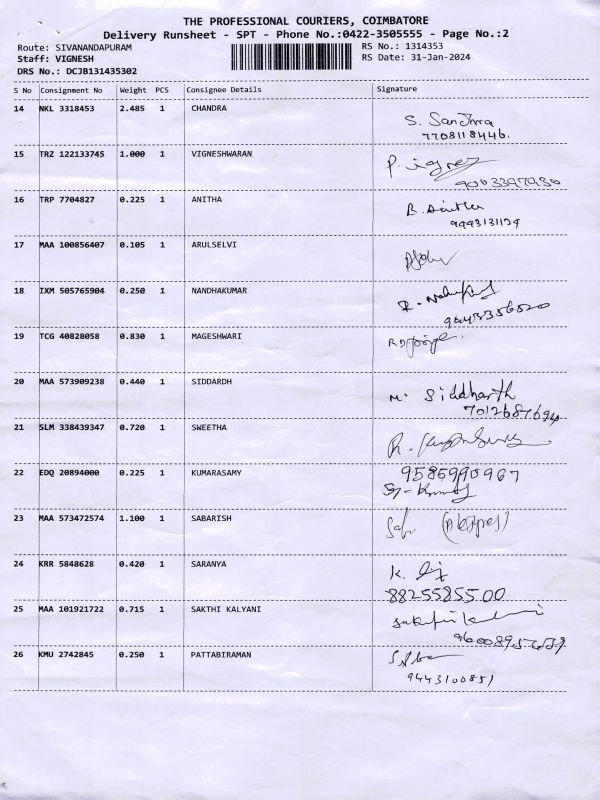 THE PROFESSIONAL COURIERS, COIMBATORE
Delivery Runsheet - SPT - Phone No.:0422-3505555 - Page No.:2
Route: SIVANANDAPURAM RS No.: 1314353
Staff: VIGNESH RS Date: 31-Jan-2024
DRS No.: DCJB131435302
S No Consignment No Weight PCS Consignee Details Signature
14 NKL 3318453 2.485 1 CHANDRA
S. Sandhra
7708118446.
15 TRZ 122133745 1.000 1 VIGNESHWARAN
P.
9003397930
16 TRP 7704827 0.225 1 ANITHA
B. Anitha
9443131134
17 MAA 100856407 0.105 1 ARULSELVI
18 IXM 505765904 0.250 1 NANDHAKUMAR
9443356520
19 TCG 40828058 0.830 1 MAGESHWARI
20 MAA 573909238 0.440 1 SIDDARDH
M. Siddharth
7012687694
21 SLM 338439347 0.720 1 SWEETHA
R.
22 EDQ 20894000 0.225 1 KUMARASAMY
9585990967
23 MAA 573472574 1.100 1 SABARISH
24 KRR 5848628 0.420 1 SARANYA
K.
8825585500
25 MAA 101921722 0.715 1 SAKTHI KALYANI
26 KMU 2742845 0.250 1 PATTABIRAMAN
9443100851